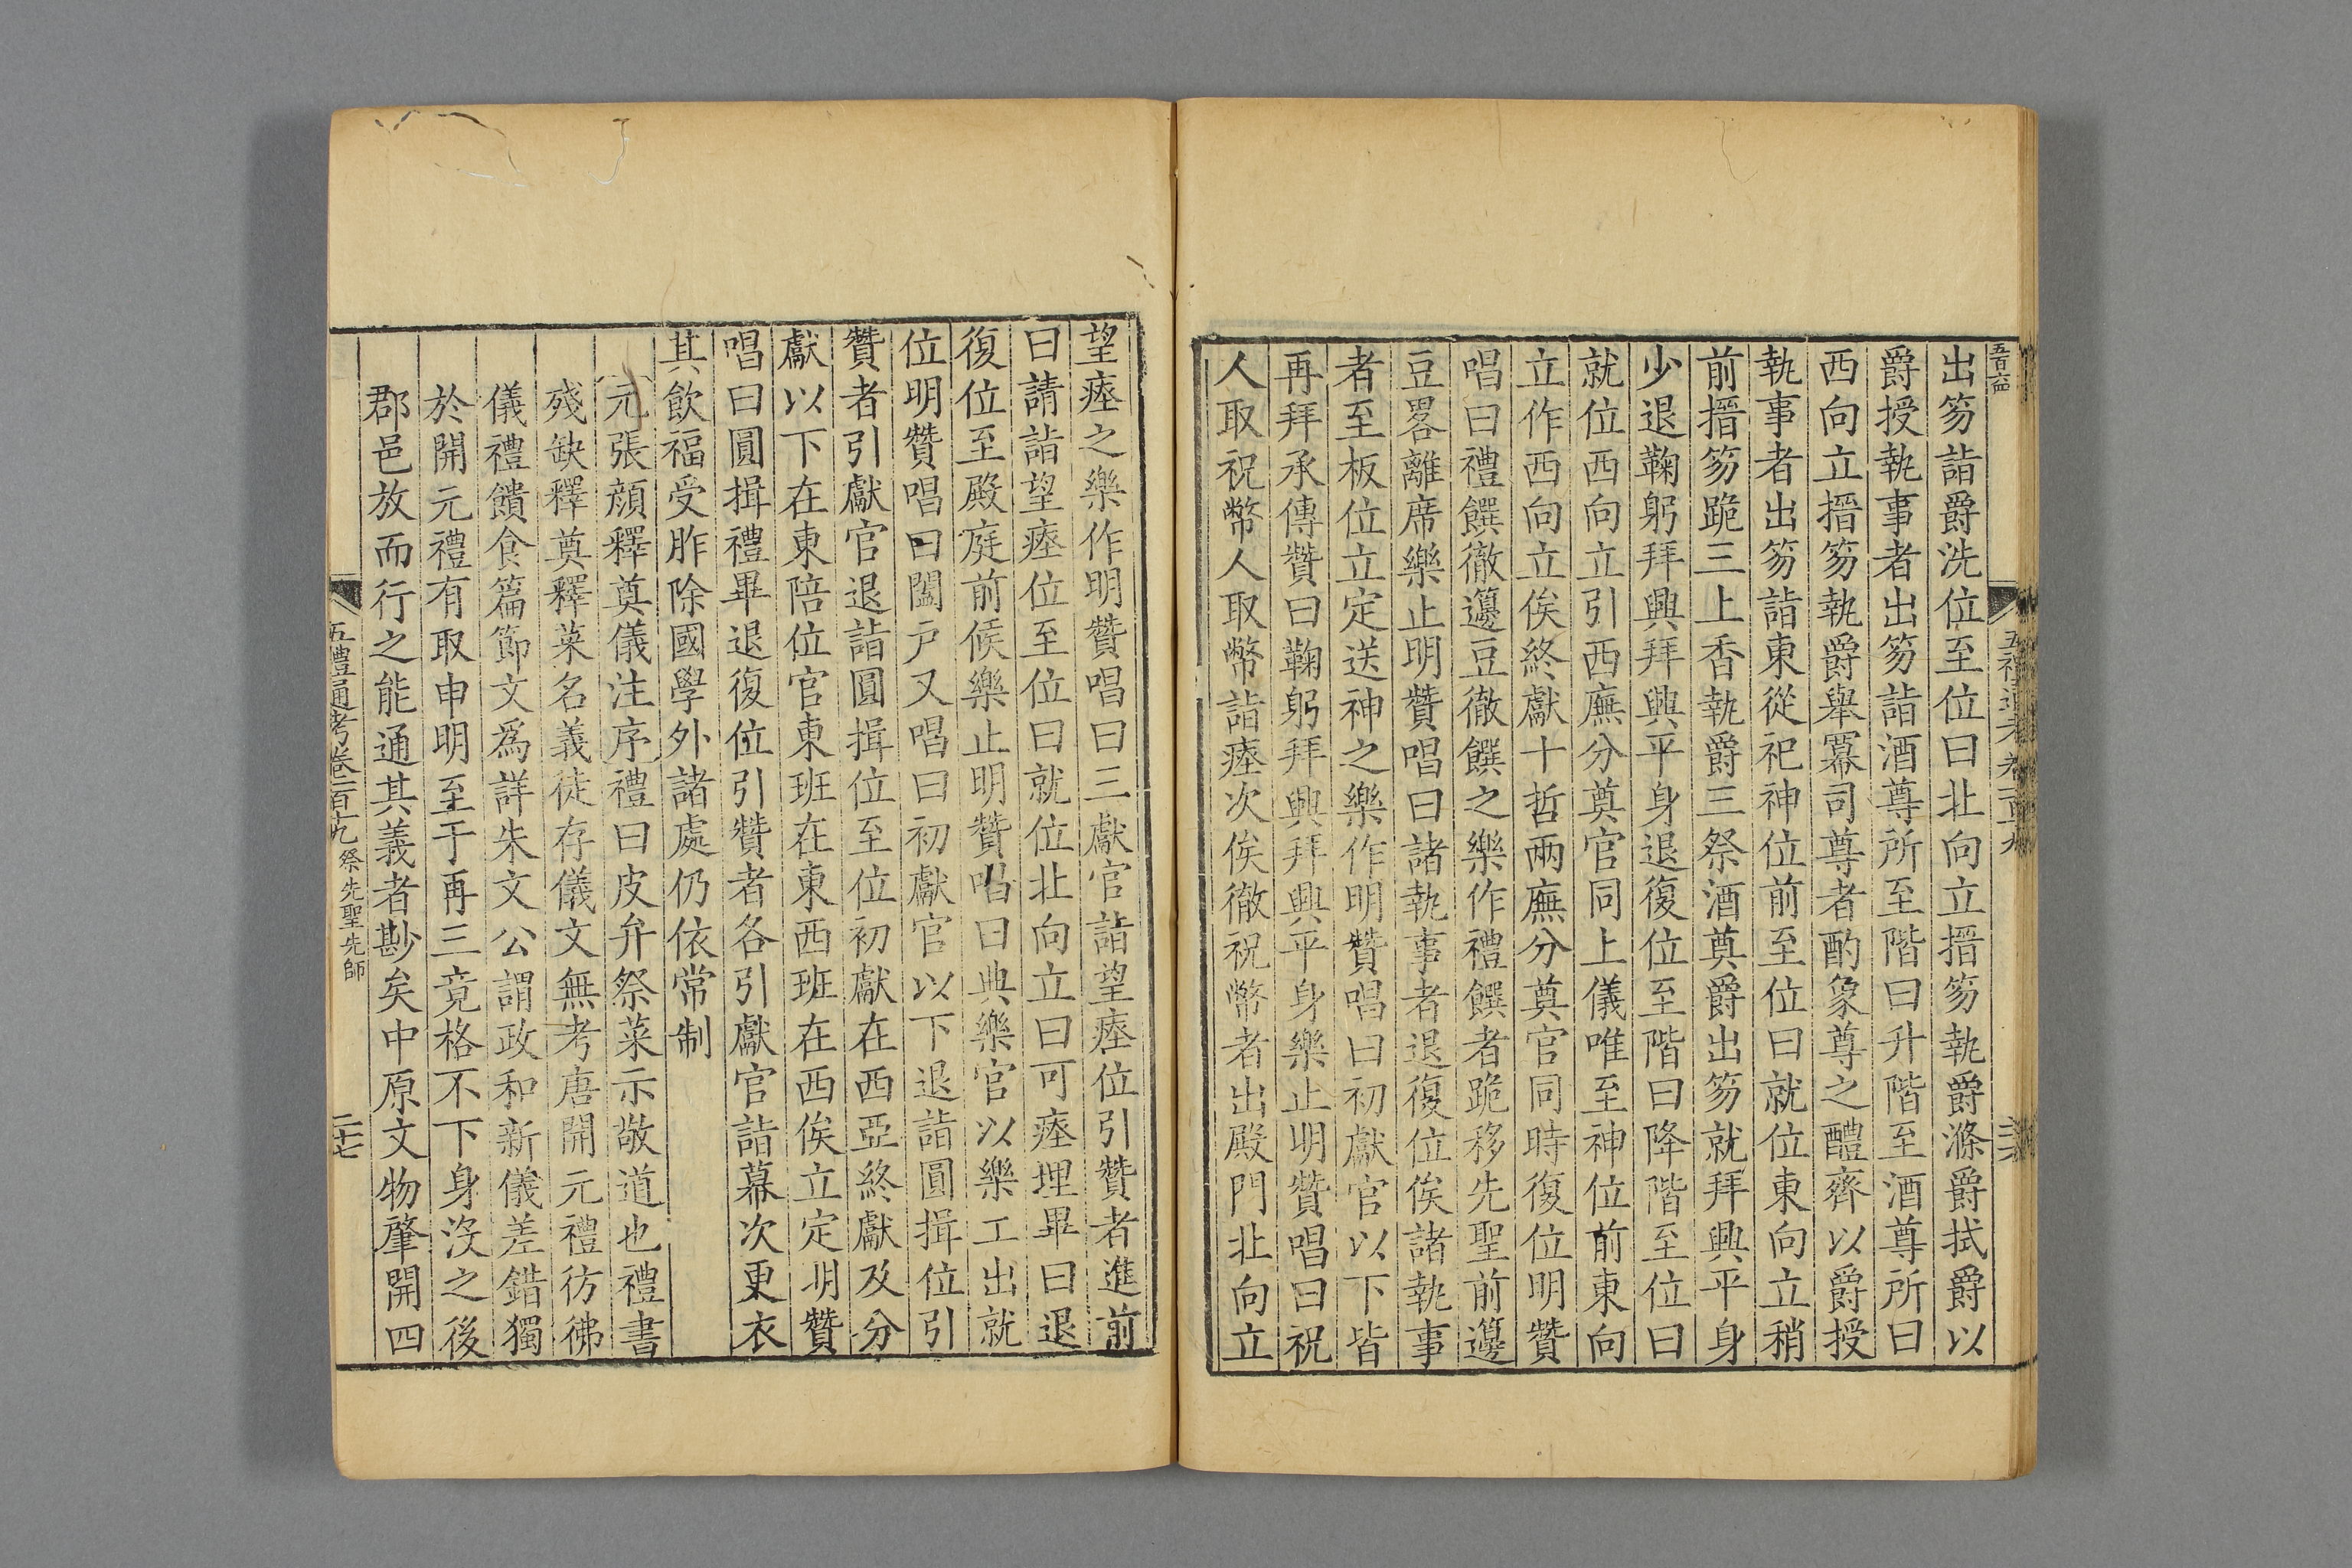 出笏詣爵洗位至位曰北向立搢笏執爵滌爵拭爵以
爵授執事者出笏詣酒尊所至階曰升階至酒尊所曰
西向立搢笏執爵舉冪司尊者酌象尊之醴齊以爵授
執事者出笏詣東從祀神位前至位曰就位東向立稍
前搢笏跪三上香執爵三祭酒奠爵出笏就拜興平身
少退鞠躬拜興拜興平身退復位至階曰降階至位曰
就位西向立引西廡分奠官同上儀唯至神位前東向
立作西向立俟終獻十哲兩廡分奠官同時復位明贊
唱曰禮饌徹籩豆徹饌之樂作禮饌者跪移先聖前籩
豆畧離席樂止明贊唱曰諸執事者退復位俟諸執事
者至板位立定送神之樂作明贊唱曰初獻官以下皆
再拜承傳贊曰鞠躬拜興拜興平身樂止明贊唱曰祝
人取祝幣人取幣詣瘞次俟徹祝幣者出殿門北向立
望瘞之樂作明贊唱曰三獻官詣望瘞位引贊者進前
曰請詣望瘞位至位曰就位北向立曰可瘞埋畢曰退
復位至殿庭前候樂止明贊唱曰典樂官以樂工出就
位明贊唱曰闔戶又唱曰初獻官以下退詣圓揖位引
贊者引獻官退詣圓揖位至位初獻在西亞終獻及分
獻以下在東陪位官東班在東西班在西俟立定明贊
唱曰圓揖禮畢退復位引贊者各引獻官詣幕次更衣
其飲福受胙除國學外諸處仍依常制
元張𩓐釋奠儀注序禮曰皮弁祭菜示敬道也禮書
殘缺釋奠釋菜名義徒存儀文無考唐開元禮彷彿
儀禮饋食篇節文爲詳朱文公謂政和新儀差錯獨
於開元禮有取申明至于再三竟格不下身沒之後
郡邑放而行之能通其義者尠矣中原文物肇開四
五禮通考卷一百十九 祭先聖先師 二十七